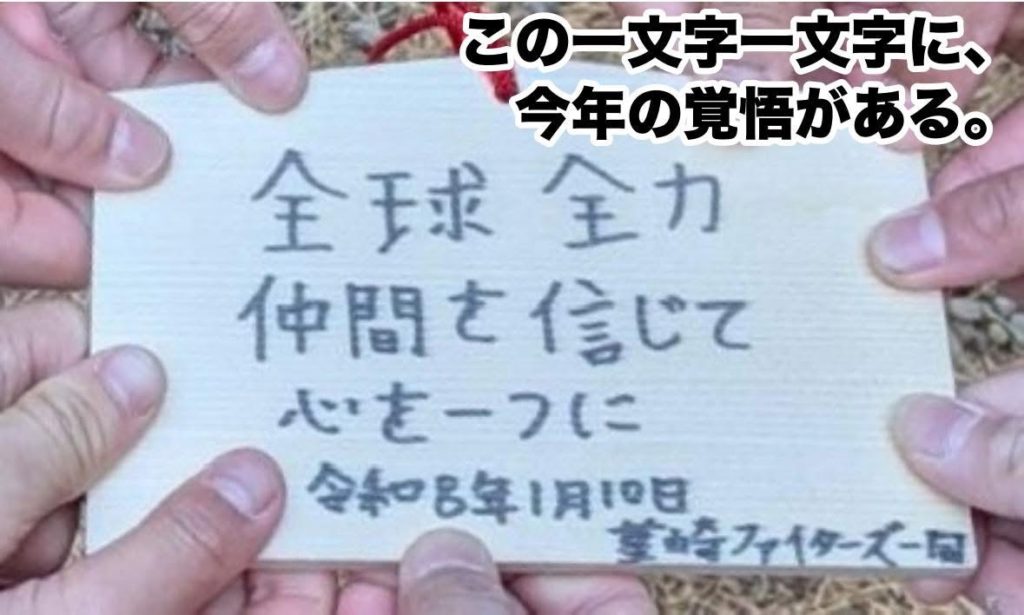 この一文字一文字に、
今年の覚悟がある。
全球 全力
仲間を信じて
心を一つに
令和8年1月10日
茎崎ファイターズ一同